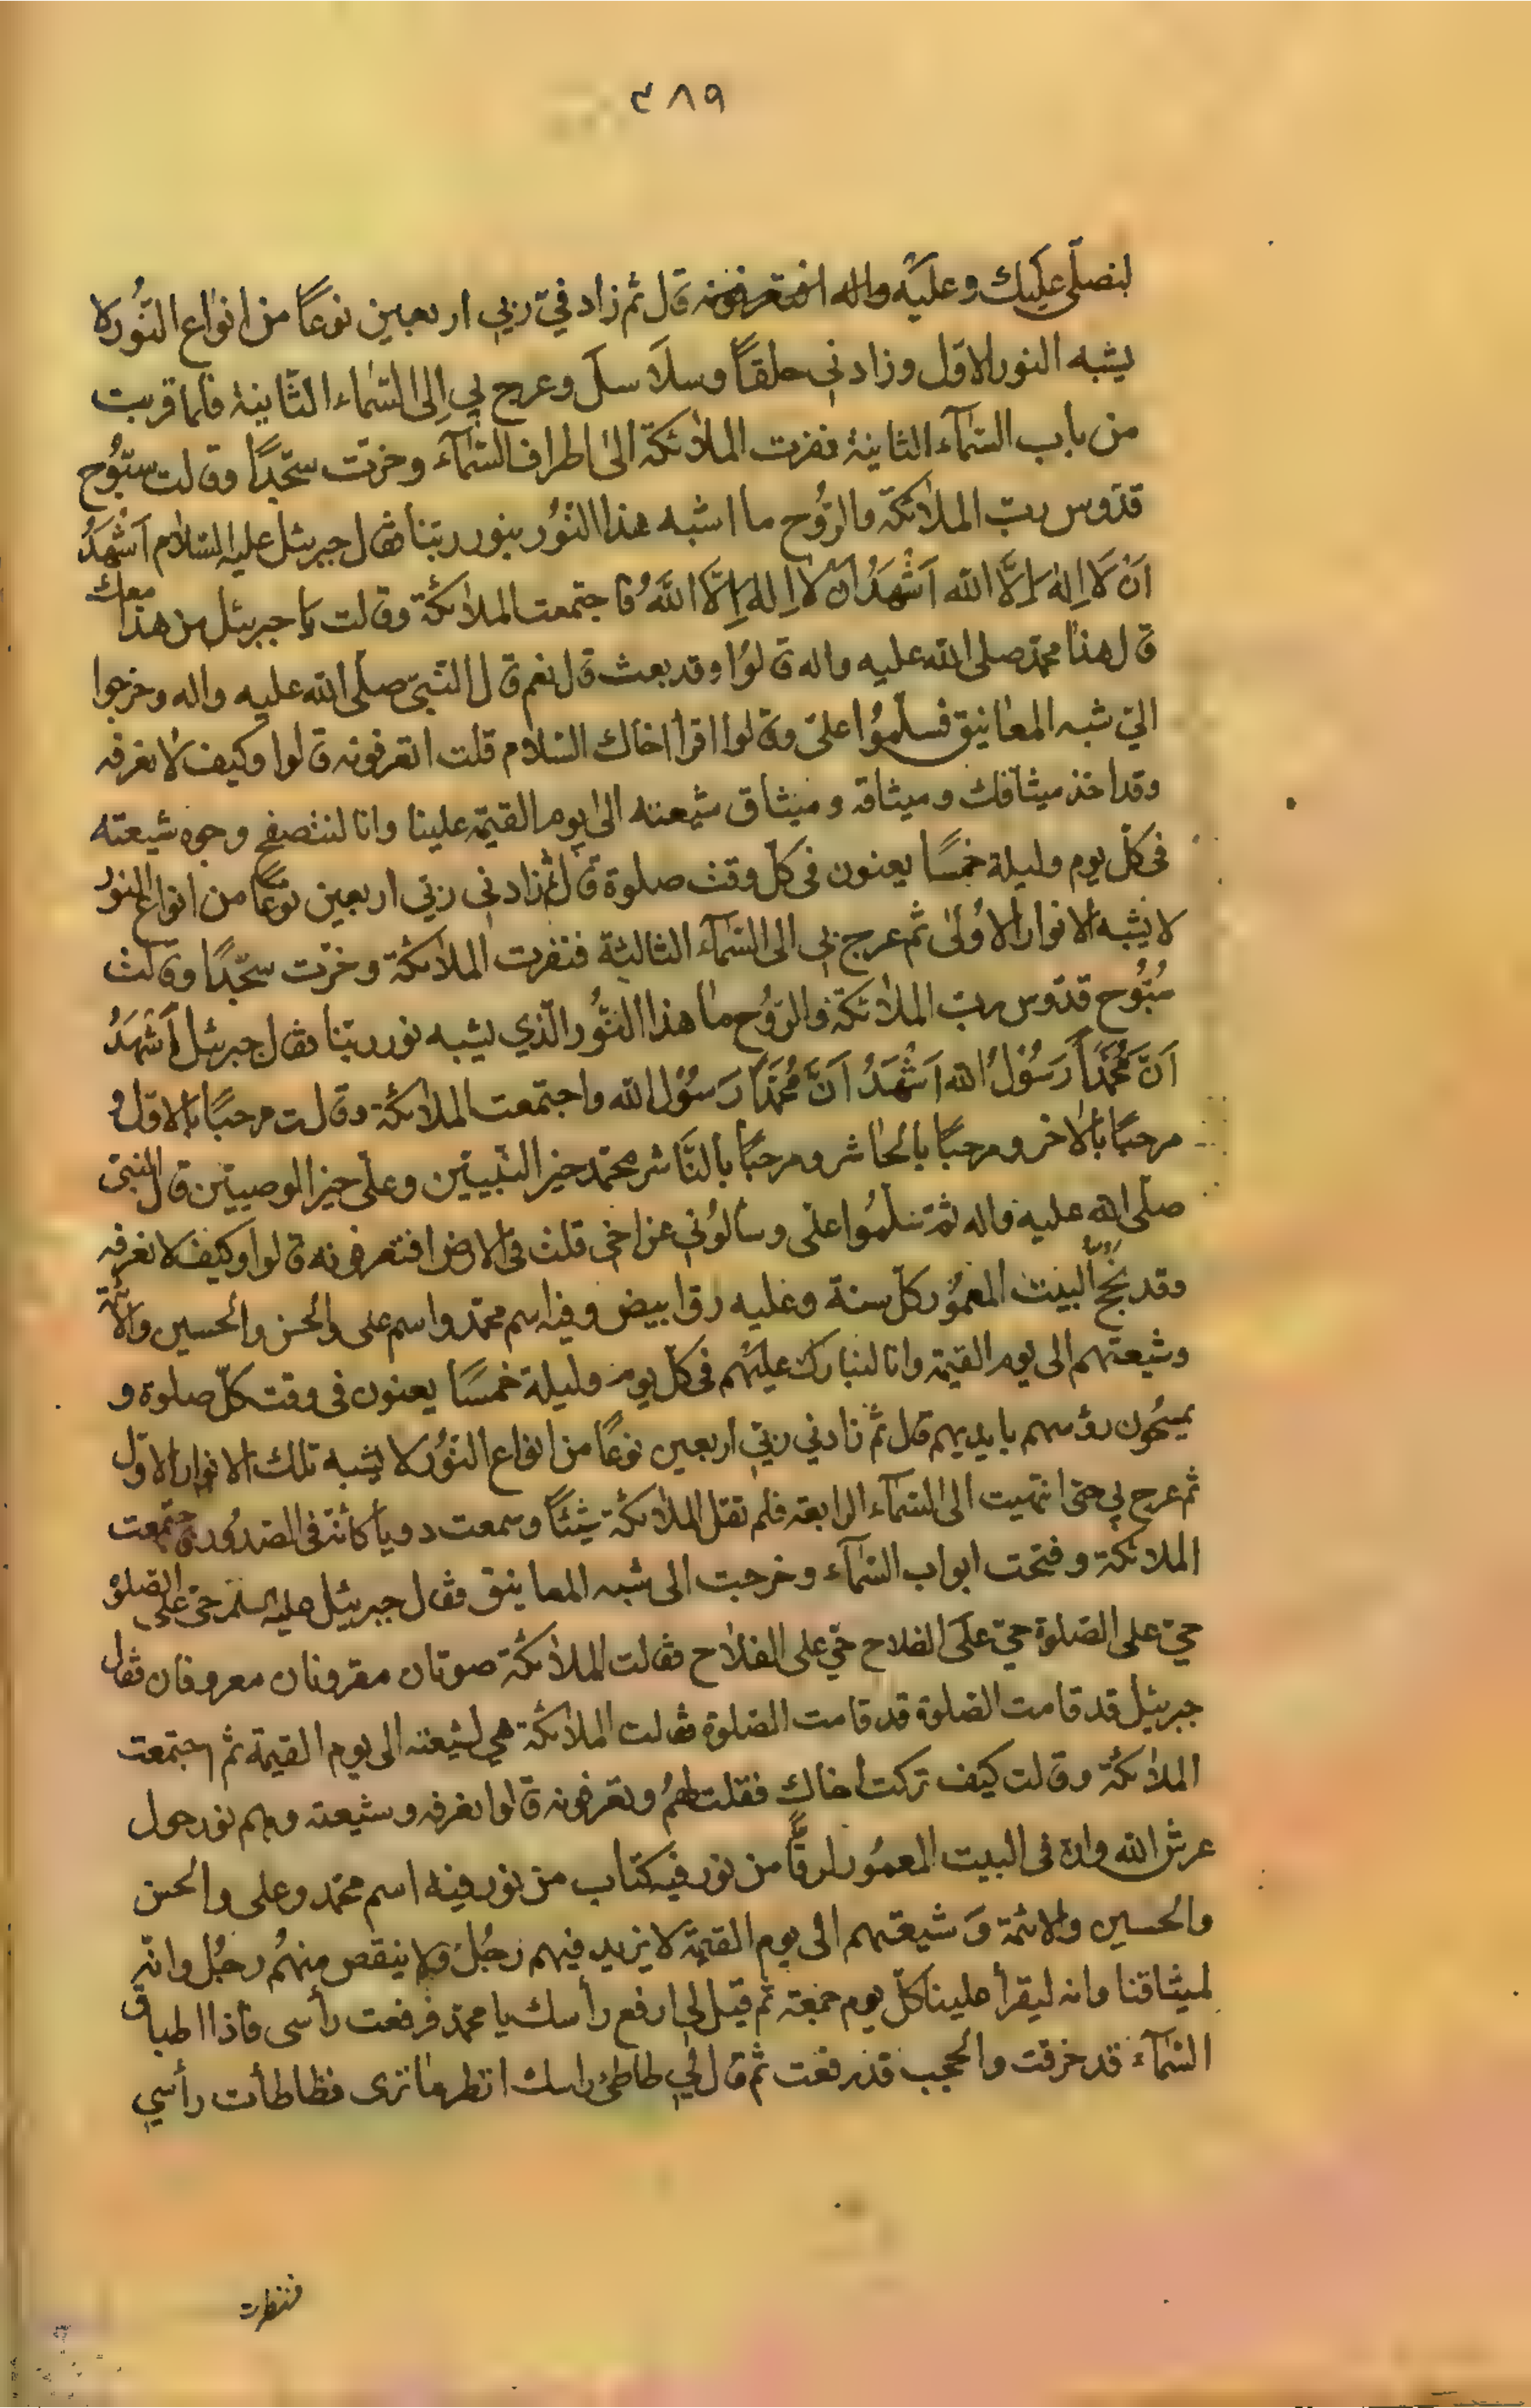 ٣٨٩
لنصلّي عليك وعليه واله قال ثم زاد فيّ ربي اربعين نوعًا من انواع النّور لا
يشبه النور الاوّل وزادني حلقًا وسلاسل وعرج بي الى السّماء الثّانية فلما قربت
من باب السّمآء الثانية نفرت الملائكة الى اطراف السّمآء وخرّت سجّدًا وقالت سبّوح
قدّوس ربّ الملائكة والرّوح ما اشبه هذا النّور بنور ربّنا فقال جبرئيل عليه السّلام اَشْهَدُ
اَنْ لَا اِلٰهَ اِلَّا الله اَشْهَدُ اَنْ لَا اِلٰهَ اِلَّا اللهُ فاجتمعت الملائكة وقالت يا جبرئيل من هذا معك
قال هذا محمّد صلى الله عليه واله قالوا وقد بعث قال نعم قال النّبيّ صلّى الله عليه واله وخرجوا
اليّ شبه المعانيق فسلّموا عليّ وقالوا اقرأ اخاك السّلام قلت اتعرفونه قالوا وكيف لا نعرفه
وقد اخذ ميثاقك وميثاقه وميثاق شيعته الى يوم القيمة علينا وانا لنتصفح وجوه شيعته
في كلّ يوم وليلة خمسًا يعنون في كلّ وقت صلوة قال ثم زادني ربّي اربعين نوعًا من انواع النور
لا يشبه الانوار الاولى ثم عرج بي الى السّمآء الثالثة فنفرت الملائكة وخرّت سجّدًا وقالت
سُبّوح قدّوس ربّ الملائكة والرّوح ما هذا النّور الّذي يشبه نور ربّنا فقال جبرئيل اَشْهَدُ
اَنَّ مُحَمَّدًا رَسُوْلُ الله اَشْهَدُ اَنَّ مُحَمَّدًا رَسُوْل الله واجتمعت الملائكة وقالت مرحبًا بالاوّل و
مرحبًا بالاخر ومرحبًا بالحاشر ومرحبًا بالنّاشر محمّد خير النّبيّين وعلي خير الوصيين قال النبيّ
صلّى الله عليه واله ثمّ سلّموا عليّ وسألوني عن اخي قلت في الارض افتعرفونه قالوا وكيف لا نعرفه
وقد نحجّ البيت المعمور كلّ سنة وعليه رق ابيض وفيه اسم محمّد واسم علي والحسن والحسين والائمّة
وشيعتهم الى يوم القيمة وانا لنبارك عليهم في كلّ يوم وليلة خمسًا يعنون في وقت كلّ صلوة و
يمسحون رؤسهم بايديهم قال ثم زادني ربّي اربعين نوعًا من انواع النّور لا يشبه تلك الانوار الاوّل
ثم عرج بي حتى انتهيت الى السّمآء الرابعة فلم تقل الملائكة شيئًا وسمعت دويا كانّه في الصّدور فاجتمعت
الملائكة وفتحت ابواب السّمآء وخرجت الى شبه المعانيق فقال جبرئيل عليه السلم حيّ على الصّلوة
حيّ على الصّلوة حيّ على الفلاح حيّ على الفلاح فقالت الملائكة صوتان مقرونان معروفان فقال
جبرئيل قد قامت الصّلوة قد قامت الصّلوة فقالت الملائكة هي لشيعته الى يوم القيمة ثم اجتمعت
الملائكة وقالت كيف تركت اخاك فقلت لهم وتعرفونه قالوا نعرفه وشيعته وهم نور حول
عرش الله وان في البيت المعمور لرقًّا من نور فيه كتاب من نور فيه اسم محمّد وعلي والحسن
والحسين والائمّة وَشيعتهم الى يوم القيمة لا يزيد فيهم رَجُلٌ ولا ينقص منهُم رجُل وانّه
لميثاقنا وانه ليقرأ علينا كلّ يوم جمعة ثم قيل لي ارفع رأسك يا محمّد فرفعت رأسى فاذا اطباق
السّمآء قد خرقت والحجب قد رفعت ثم قال لي طاطئ راسك انظر ما ترى فطاطأت رأسي
فنظرت